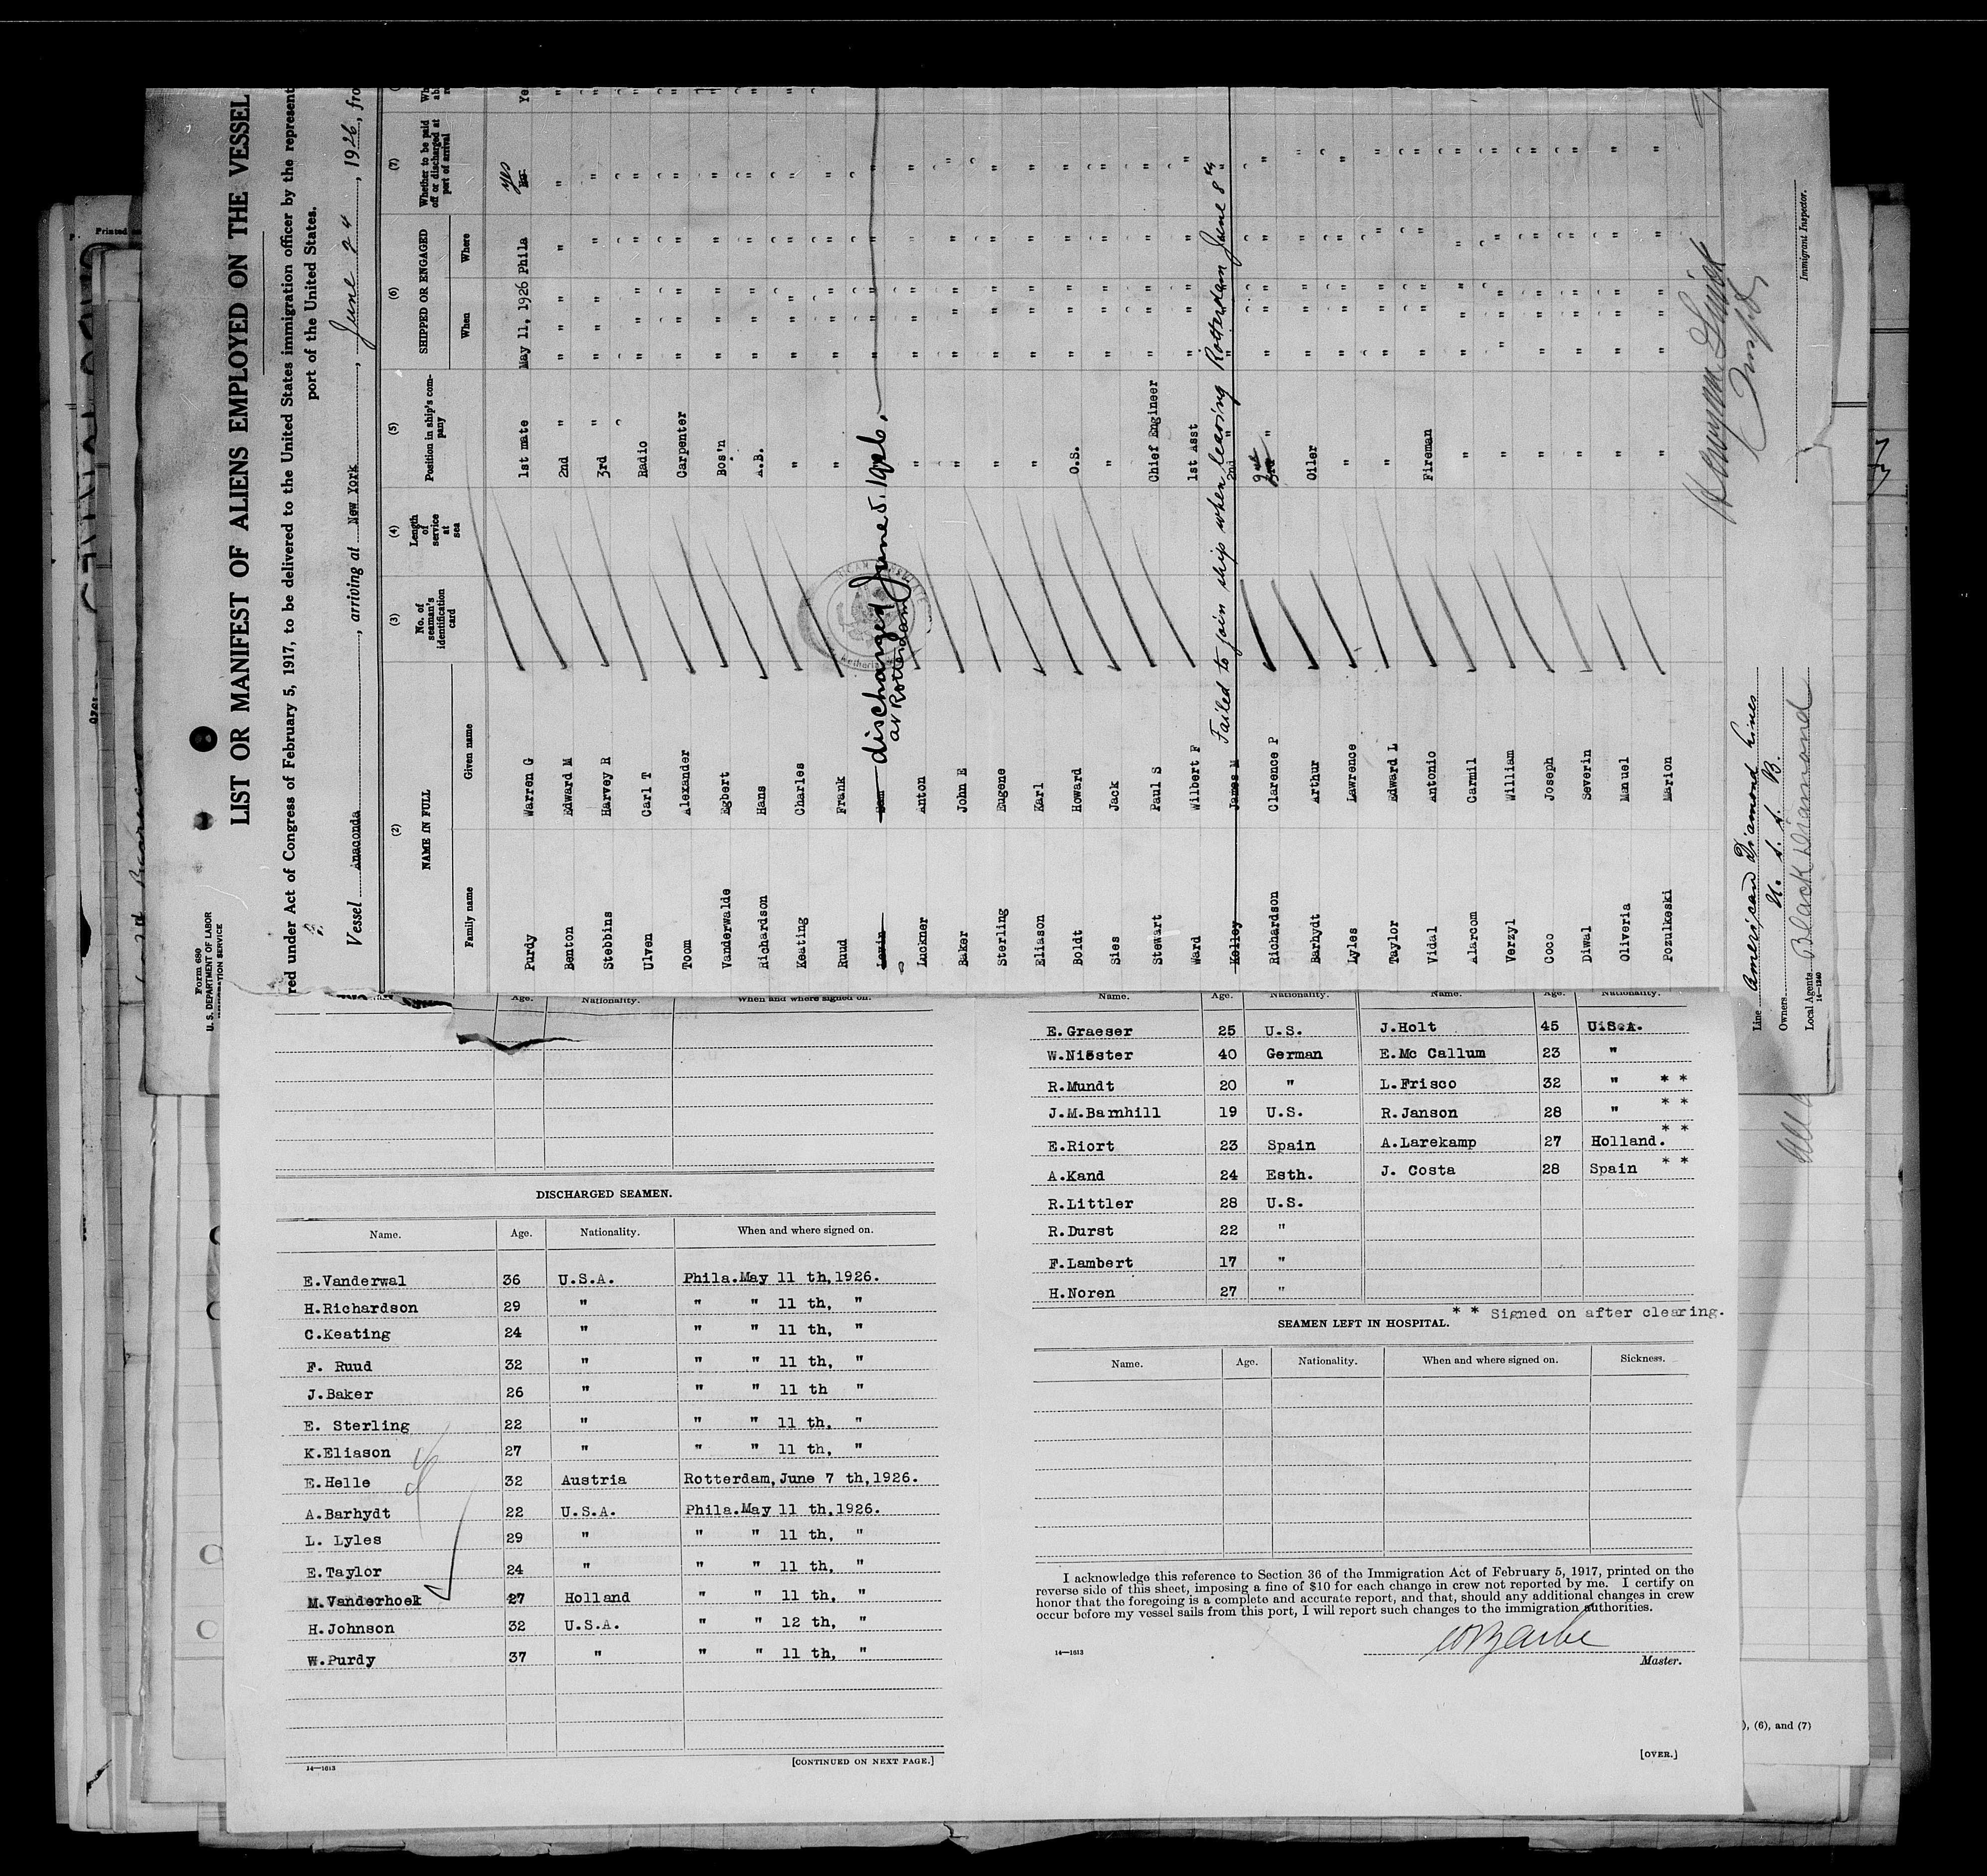 Form 680
U. S. DEPARTMENT OF LABOR
IMMIGRATION SERVICE
LIST OR MANIFEST OF ALIENS EMPLOYED ON THE VESSEL
red under Act of Congress of February 5, 1917, to be delivered to the United States immigration officer by the represent
port of the United States.
Vessel Anaconda, arriving at New York, June 24, 1926, fro
(2) (3) (4) (5) (6) (7)
NAME IN FULL
Family name Given name
No. of seaman's identification card
Length of service at sea
Position in ship's company
SHIPPED OR ENGAGED
When Where
Whether to be paid off or discharged at port of arrival
Purdy Warren G 1st mate May 11, 1926 Phila yes Ye
Benton Edward M 2nd " " " " " "
Stebbins Harvey R 3rd " " " " " "
Ulven Carl T Radio " " " " "
Toom Alexander Carpenter " " " " "
Vanderwalde Egbert Bos'n " " " " "
Richardson Hans A.B. " " " " "
Keating Charles " " " " " "
Ruud Frank " " " " " "
Lewin Sam discharged June 5. 1926.
at Rotterdam
Luckner Anton " " " " "
Baker John E " " " " "
Sterling Eugene " " " " "
Eliason Karl " " " " "
Boldt Howard O.S. " " " " "
Sies Jack " " " " "
Stewart Paul S Chief Engineer " " " " "
Ward Wilbert F 1st Asst " " " " "
Kelley James M 2nd " Failed to join ship when leaving Rotterdam June 8th
Richardson Clarence P 2nd 3rd " " " " "
Barhydt Arthur Oiler " " " " "
Lyles Lawrence " " " " "
Taylor Edward L " " " " "
Vidal Antonio Fireman " " " " "
Alarcom Carmil " " " " "
Verzyl William " " " " "
Coco Joseph " " " " "
Diwal Severin " " " " "
Oliveria Manuel " " " " "
Pozulkeski Marion " " " " "
Line American Diamond Lines
Owners U. S. S. B.
Local Agents Black Diamond
14—1240
Immigrant Inspector.
Age. Nationality. When and where signed on.
DISCHARGED SEAMEN.
Name. Age. Nationality. When and where signed on.
E.Vanderwal 36 U.S.A. Phila.May 11 th,1926.
H.Richardson 29 " " " 11 th, "
C.Keating 24 " " " 11 th, "
F. Ruud 32 " " " 11 th, "
J.Baker 26 " " " 11 th "
E. Sterling 22 " " " 11 th, "
K.Eliason 27 " " " 11 th, "
E.Helle 32 Austria Rotterdam,June 7 th,1926.
A.Barhydt 22 U.S.A. Phila.May 11 th,1926.
L. Lyles 29 " " " 11 th, "
E.Taylor 24 " " " 11 th, "
M.Vanderhoek 27 Holland " " 11 th, "
H.Johnson 32 U.S.A. " " 12 th, "
W.Purdy 37 " " " 11 th, "
14—1613
[CONTINUED ON NEXT PAGE.]
Name. Age. Nationality. Name. Age. Nationality.
E.Graeser 25 U.S. J.Holt 45 U.S.A.
W.Niester 40 German E.Mc Callum 23 "
R.Mundt 20 " L.Frisco 32 " * *
J.M.Barnhill 19 U.S. R.Janson 28 " * *
E.Riort 23 Spain A.Larekamp 27 Holland. * *
A.Kand 24 Esth. J. Costa 28 Spain * *
R.Littler 28 U.S.
R.Durst 22 "
F.Lambert 17 "
H.Noren 27 "
* * Signed on after clearing.
SEAMEN LEFT IN HOSPITAL.
Name. Age. Nationality. When and where signed on. Sickness.
I acknowledge this reference to Section 36 of the Immigration Act of February 5, 1917, printed on the
reverse side of this sheet, imposing a fine of $10 for each change in crew not reported by me. I certify on
honor that the foregoing is a complete and accurate report, and that, should any additional changes in crew
occur before my vessel sails from this port, I will report such changes to the immigration authorities.
14—1613
Master.
[OVER.]
), (6), and (7)
Printed